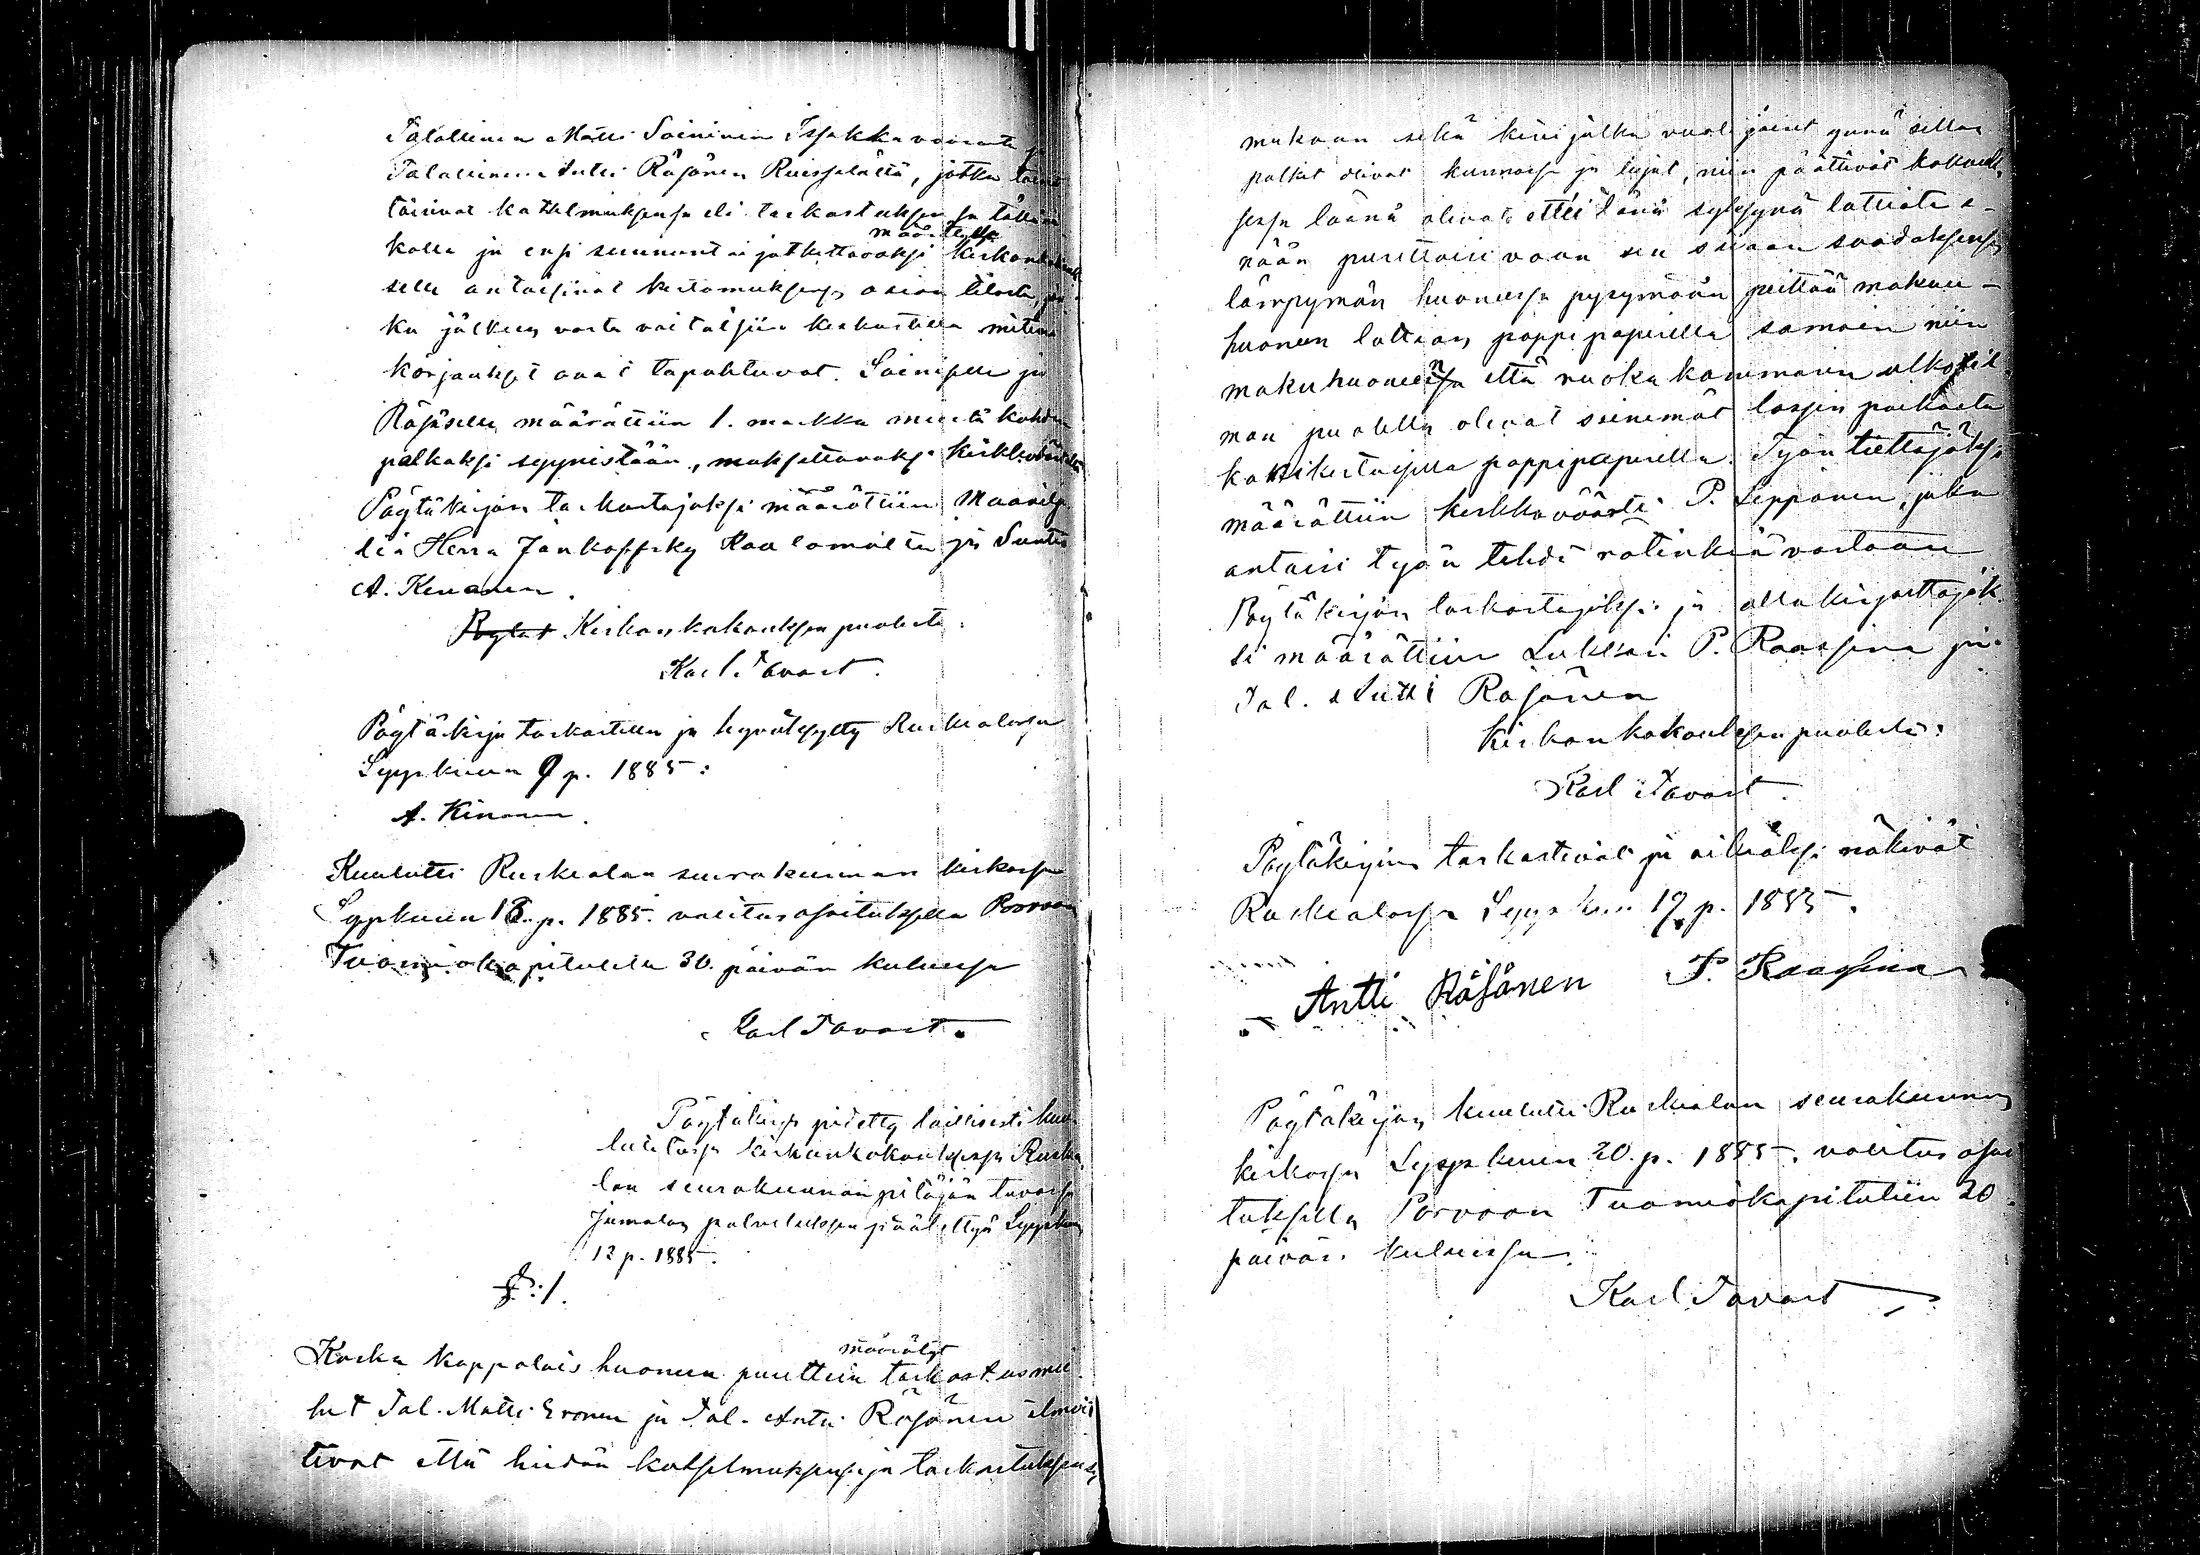 Talollinen Matti Soininen Issakkavaarasta ja
Talollinen Antti Räsänen Ruissalosta, jotka
täisivat katselmuksensa eli tarkastuksensa tällä
kolla ja ensi sunnuntai jatkettavaksi määrätyssä kirkonkokouk
selle antaisivat kertomuksensa asian tilasta, jon
ka jälkeen vasta voitaisiin keskustella miten
korjaukset ovat tapahtuvat. Soiniselle ja
Räsäselle määrättiin 1. markka miestä kohden
palkaksi syynistään, maksettavaksi kirkkovaroista
Pöytäkirjan tarkastajaksi määrättiin Maanvilje
liä Herra Jankoffsky Kaalamolta ja Suntio
A. Kinanen.
Kirkonkokouksen puolesta:
Karl Tavast.
Pöytäkirja tarkastettu ja hyväksytty Ruskealassa
Syyskuun 9 p. 1885:
A. Kinanen.
Kuulutti Ruskealan seurakunnan kirkossa
Syyskuun 13. p. 1885. valitusosoituksella Porvoon
Tuomiokapituliin 30. päivän kuluessa
Karl Tavast.
Pöytäkirja pidetty laillisesti kuu
lutetussa kirkonkokouksessa Ruskea
lan seurakunnan pitäjän tuvassa
Jumalan palveluksen päätettyä Syyskuun
12 p. 1885.
§:1.
Koska kappalais huoneen puuttein määrätyt tarkastusmie
het Tal. Matti Eronen ja Tal. Antti Räsänen ilmoit
tivat että heidän katselmuksensa ja tarkastuksensa
mukaan sekä kivijalka
palkit olivat kunnossa ja lujat, niin päättivät kokouk
sessa läsnä olevat ettei tänä syksynä lattiata e-
nään purettaisi vaan sen sijaan saadaksensa
lämpymän huoneessa pysymään peittää makuu-
huoneen lattian pappipaperilla samoin niin
makuhuoneessa että ruoka kammarin ulkosil
man puolella olevat seinämät
kaksikertaisella pappipaperilla. Työn teettäjäksi
määrättiin kirkkoväärti P. Leppänen, joka
antaisi työn tehdä rätinkiä vastaan
Pöytäkirjan tarkastajiksi ja allekirjoittajik
si määrättiin Lukkari P. Raassina ja
Tal. Antti Räsänen
Kirkonkokouksen puolesta:
Karl Tavast.
Pöytäkirjan tarkastivat ja oikiaksi näkivät
Ruskealassa Syyskuun 19 p. 1885.
Antti Räsänen P. Raassina
Pöytäkirjan kuulutti Ruskealan seurakunnan
kirkossa Syyskuun 20. p. 1885. valitus osoi
tuksella Porvoon Tuomiokapituliin 30.
päivän kuluessa.
Karl Tavast